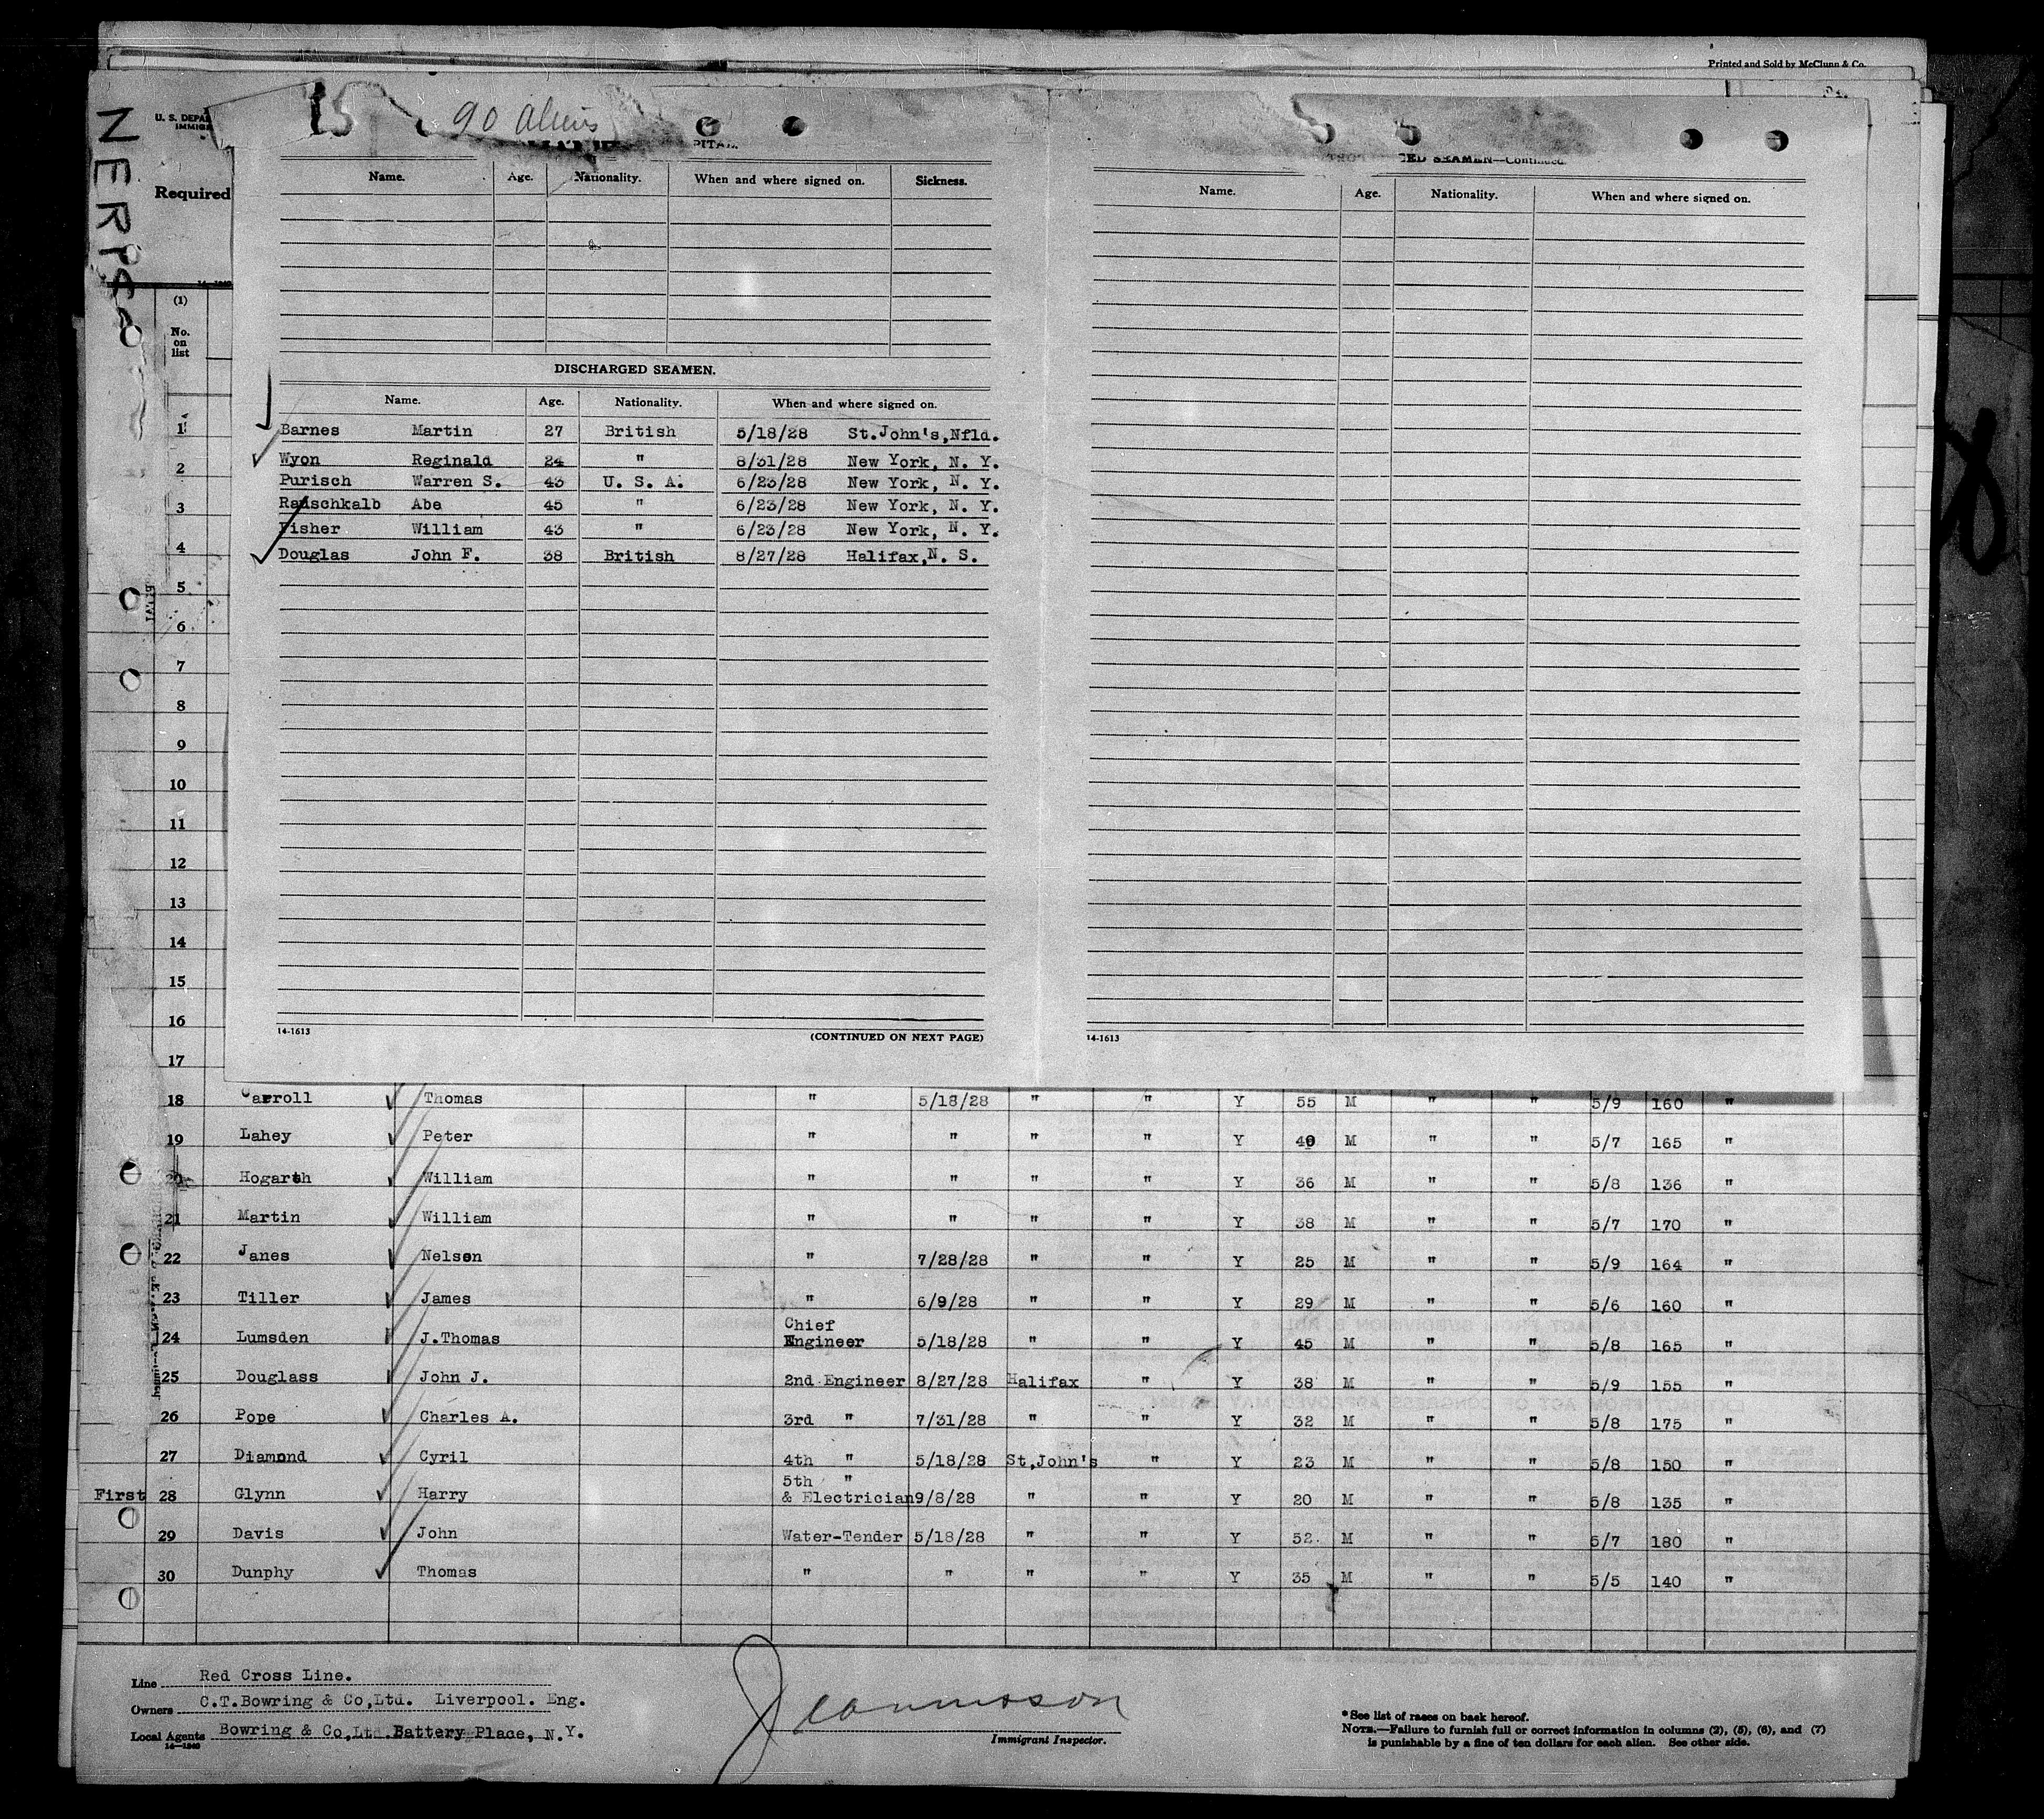 Printed and Sold by McClunn & Co.
NERISSA
U. S. DEPA
IMMIG
15 90 Aliens
PITAL.
Required
CED SEAMEN—Continued.
Name. Age. Nationality. When and where signed on. Sickness.
Name. Age. Nationality. When and where signed on.
(1)
No.
on
list
DISCHARGED SEAMEN.
Name. Age. Nationality. When and where signed on.
1 Barnes Martin 27 British 5/18/28 St.John's,Nfld.
2 Wyon Reginald 24 " 8/31/28 New York, N. Y.
Purisch Warren S. 43 U. S. A. 6/23/28 New York, N. Y.
3 Rauschkalb Abe 45 " 6/23/28 New York, N. Y.
Fisher William 43 " 6/23/28 New York, N. Y.
4 Douglas John F. 38 British 8/27/28 Halifax,N. S.
5
6
7
8
9
10
11
12
13
14
15
16
14-1613 (CONTINUED ON NEXT PAGE) 14-1613
17
18 Carroll Thomas " 5/18/28 " " Y 55 M " " 5/9 160 "
19 Lahey Peter " " " " Y 40 M " " 5/7 165 "
20 Hogarth William " " " " Y 36 M " " 5/8 136 "
21 Martin William " " " " Y 38 M " " 5/7 170 "
22 Janes Nelson " 7/28/28 " " Y 25 M " " 5/9 164 "
23 Tiller James " 6/9/28 " " Y 29 M " " 5/6 160 "
Chief
24 Lumsden J.Thomas Engineer 5/18/28 " " Y 45 M " " 5/8 165 "
25 Douglass John J. 2nd Engineer 8/27/28 Halifax " Y 38 M " " 5/9 155 "
26 Pope Charles A. 3rd " 7/31/28 " " Y 32 M " " 5/8 175 "
27 Diamond Cyril 4th " 5/18/28 St,John's " Y 23 M " " 5/8 150 "
5th "
First 28 Glynn Harry & Electrician 9/8/28 " " Y 20 M " " 5/8 135 "
29 Davis John Water-Tender 5/18/28 " " Y 52 M " " 5/7 180 "
30 Dunphy Thomas " " " " Y 35 M " " 5/5 140 "
Line Red Cross Line.
Owners C.T.Bowring & Co,Ltd. Liverpool. Eng.
Local Agents Bowring & Co,Ltd.Battery Place, N.Y.
14—1240
Immigrant Inspector.
*See list of races on back hereof.
NOTE.—Failure to furnish full or correct information in columns (2), (5), (6), and (7)
is punishable by a fine of ten dollars for each alien. See other side.